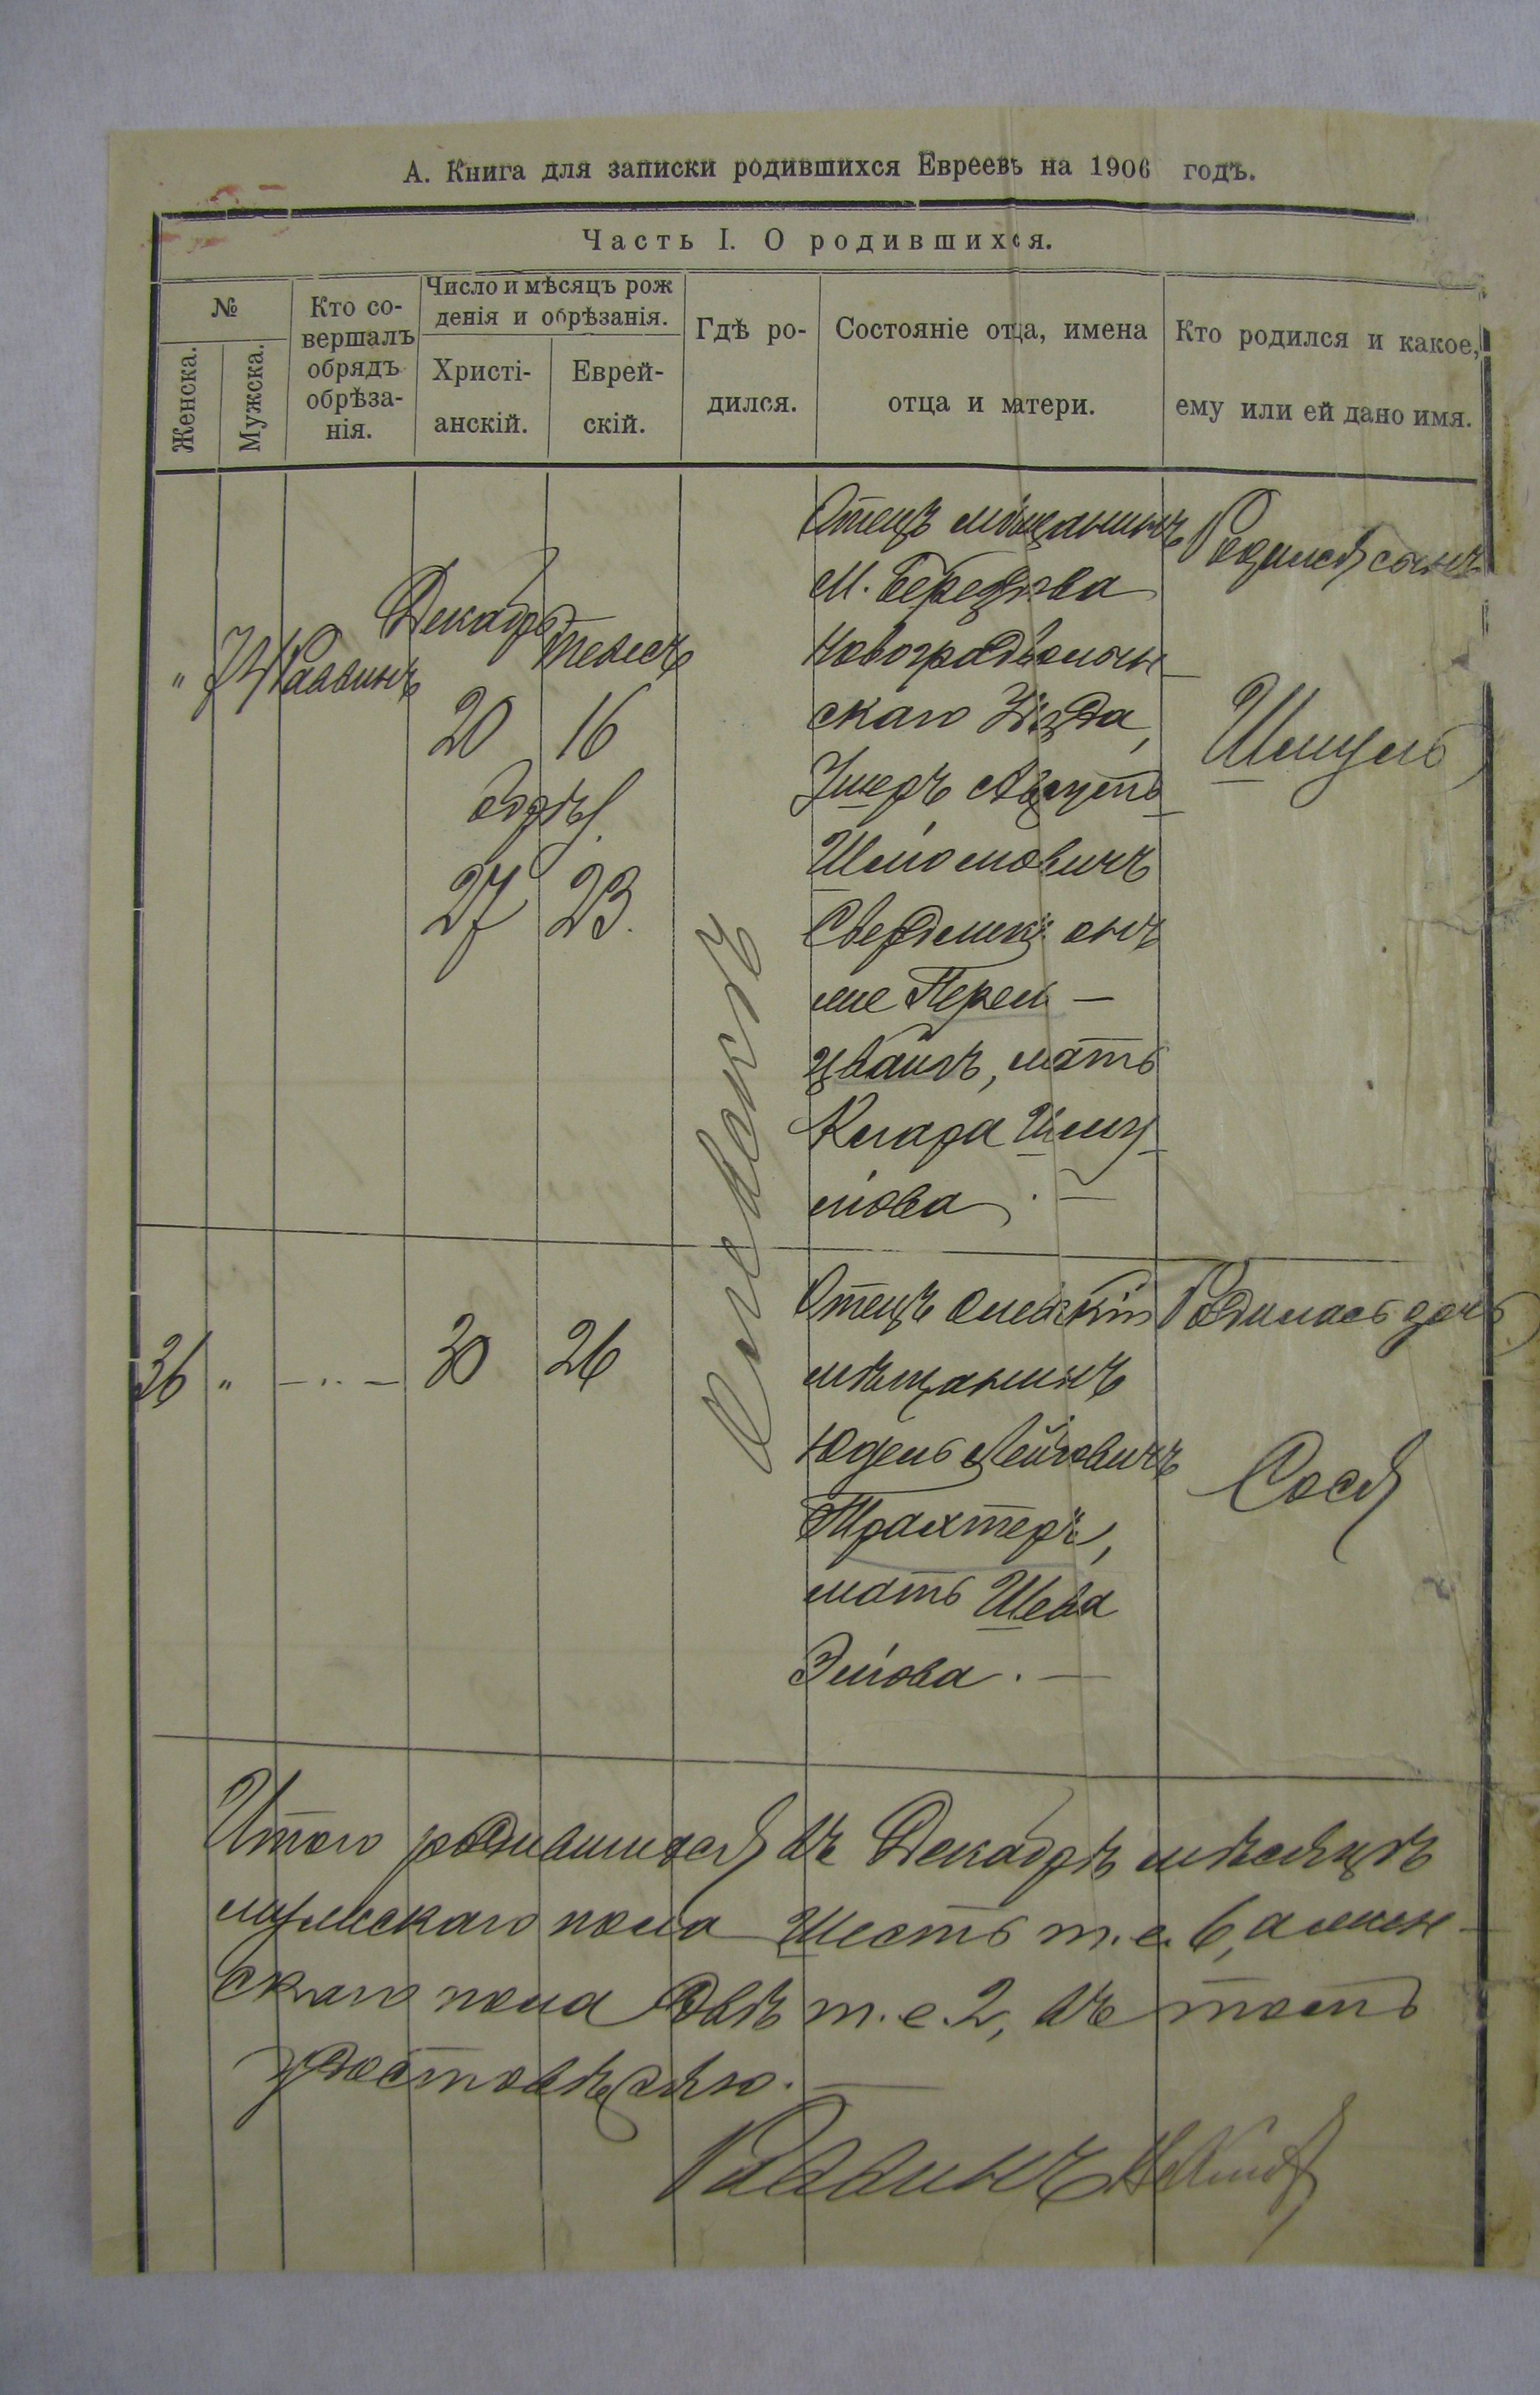 А. Книга для записки родившихся Евреевъ на 1906 годъ.
Часть I. О родившихся.
№
Женска.
Мужска.
Кто со-
вершалъ
обрядъ
обрѣза-
нія.
Число и мѣсяцъ рож
денія и обрѣзанія.
Христі-
анскій.
Еврей-
скій.
Гдѣ ро-
дился.
Состояніе отца, имена
отца и матери.
Кто родился и какое,
ему или ей дано имя.
"
Раввинъ
Декабр
Тевесъ
20
16
обрѣз.
27
23.
Олевскъ
Отецъ мѣщанинъ
М. Березова
Новоградволын
скаго Уѣзда,
Ушеръ
Шлiомовичъ
онъ
же Перел -
цваигъ, мать
Клара Шму_
лiова . —
Родился сынъ
Шмуль
36
"
— .. —
30
26
Отецъ Олевскій
мѣщанинъ
Юдель Лейзовичъ
Трахтеръ,
мать Шева
Элiова . —
Родилась дочь
Сося
Итого родившихся въ Декабрѣ мѣсяцѣ
мужскаго пола Шесть т.е. 6, а жен
скаго пола Двѣ т.е. 2, въ томъ
удостовѣряю. —
Раввинъ